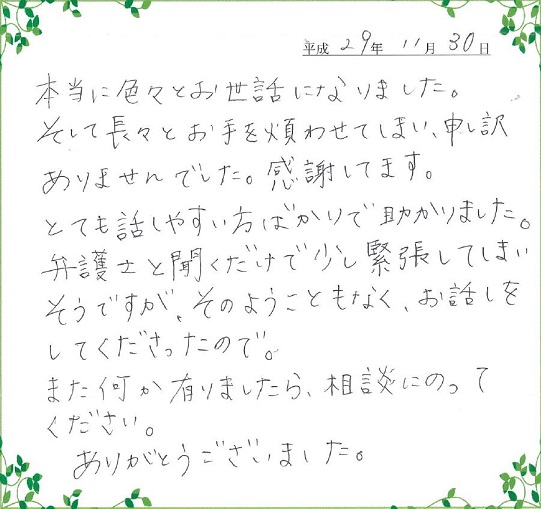 平成 29年 11月 30日
本当に色々とお世話になりました。
そして長々とお手を煩わせてしまい、申し訳
ありませんでした。感謝してます。
とても話しやすい方ばかりで助かりました。
弁護士と聞くだけで少し緊張してしまい
そうですが、そのようこともなく、お話しを
してくださったので。
また何か有りましたら、相談にのって
ください。
ありがとうございました。